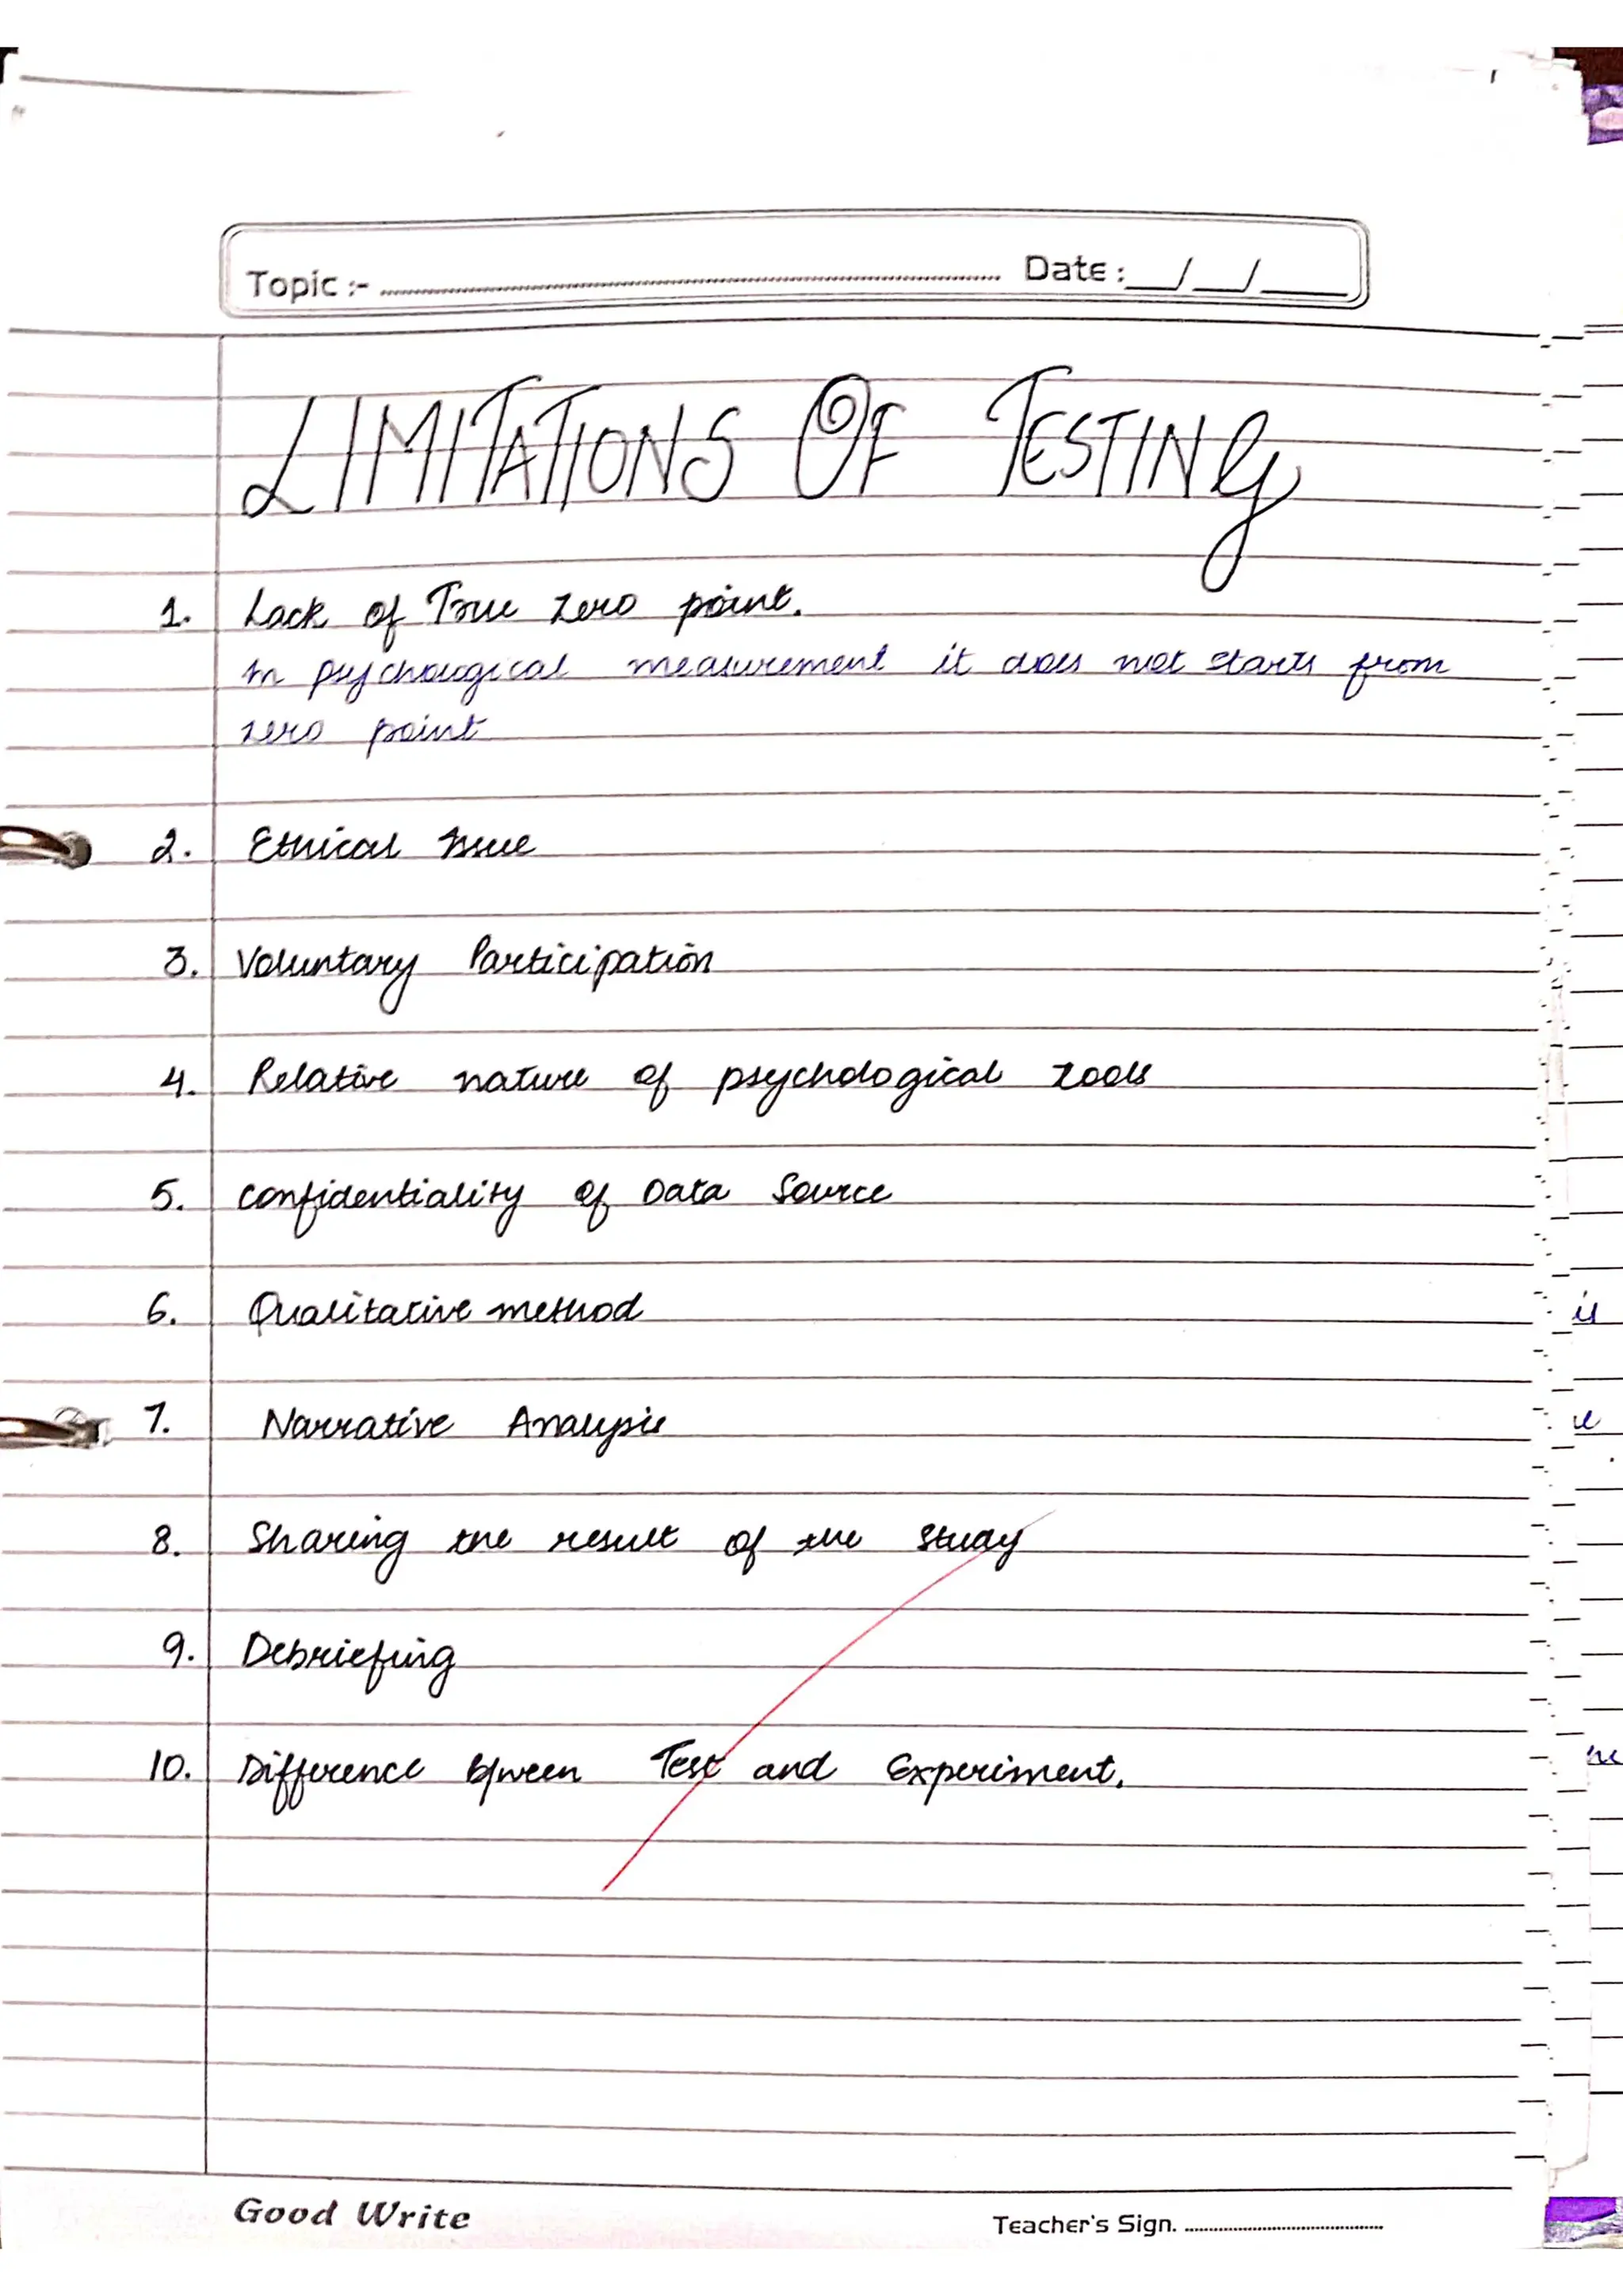 Topic :- Date : __/__/____
LIMITATIONS OF TESTING
1. Lack of True zero point.
In psychological measurement it does not starts from
zero point
2. Ethical Issue
3. Voluntary Participation
4. Relative nature of psychological tools
5. Confidentiality of Data Source
6. Qualitative method
7. Narrative Analysis
8. Sharing the result of the study
9. Debriefing
10. Difference b/ween Test and Experiment.
Good Write
Teacher's Sign.